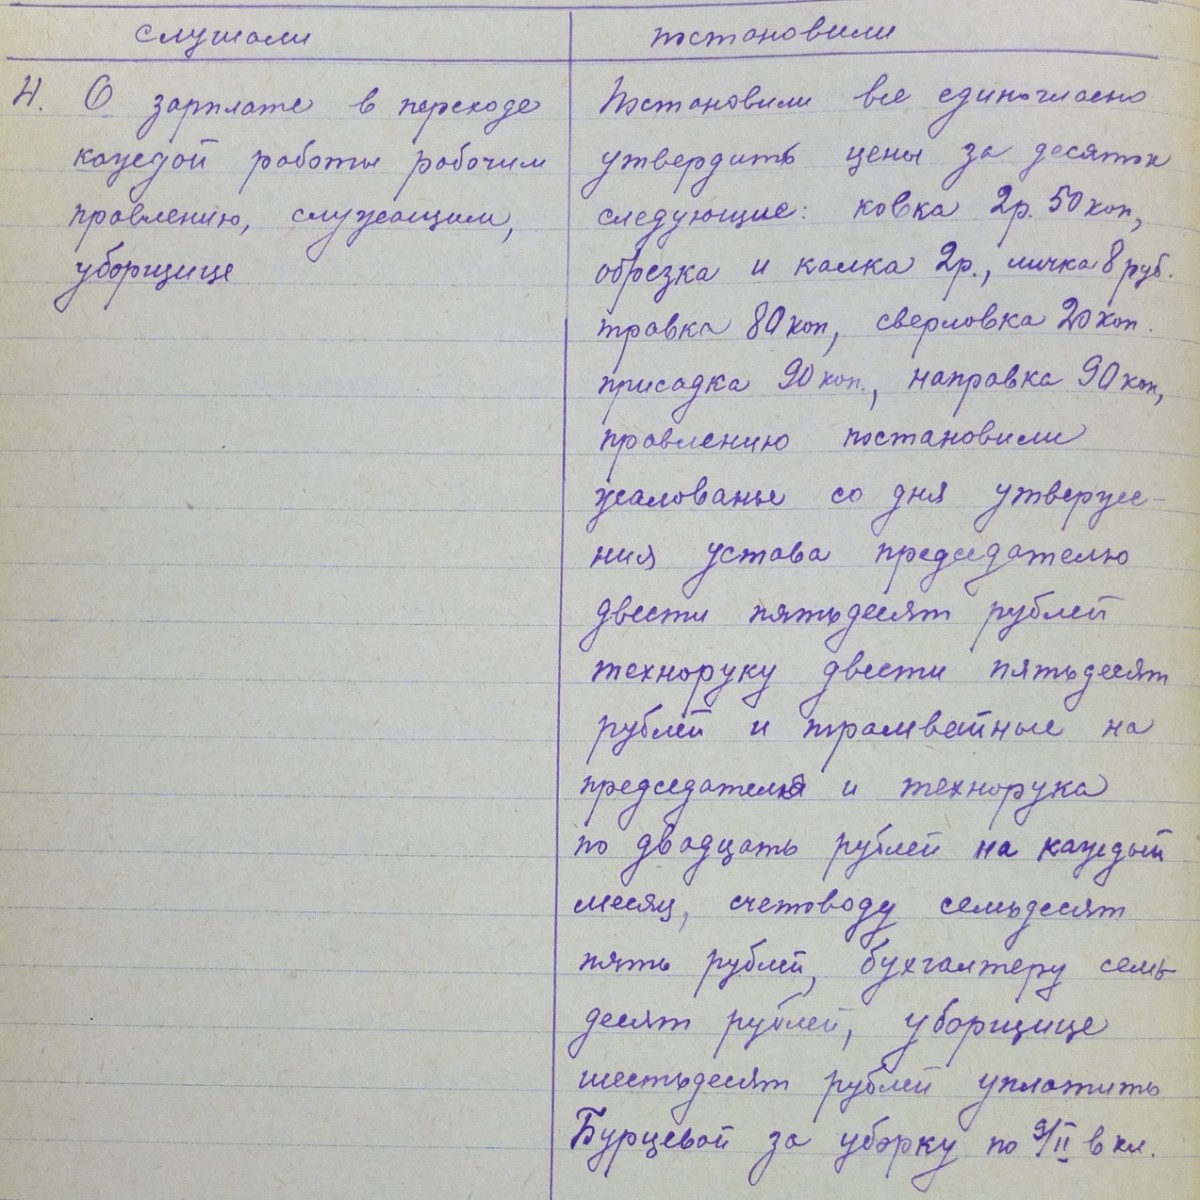 слушали
постановили
4. О зарплате в переходе
каждой работы рабочим
правлению, служащим,
уборщице
Постановили все единогласно
утвердить цены за десяток
следующие: ковка 2р. 50 коп,
обрезка и калка 2р., личка 8 руб.
травка 80 коп, сверловка 20 коп.
присадка 90 коп., направка 90 коп,
правлению постановили
жалованье со дня утвержде-
ния устава председателю
двести пятьдесят рублей
техноруку двести пятьдесят
рублей и трамвайные на
председателя и технорука
по двадцать рублей на каждый
месяц, счетоводу семьдесят
пять рублей, бухгалтеру семь
десят рублей, уборщице
шестьдесят рублей уплатить
Бурцевой за уборку по 9/II вкл.